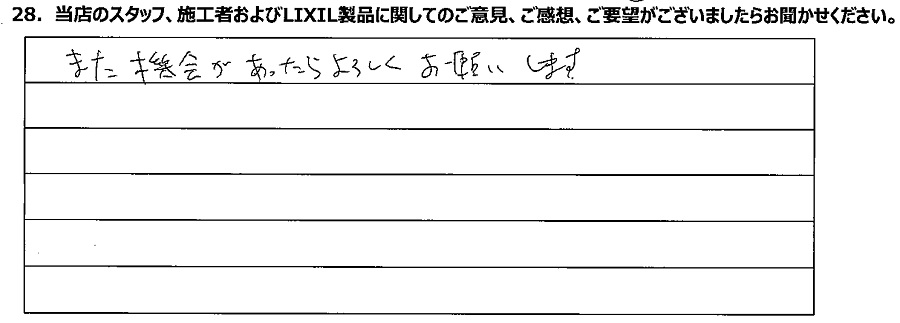 28. 当店のスタッフ、施工者およびLIXIL製品に関してのご意見、ご感想、ご要望がございましたらお聞かせください。
また機会があったらよろしくお願いします